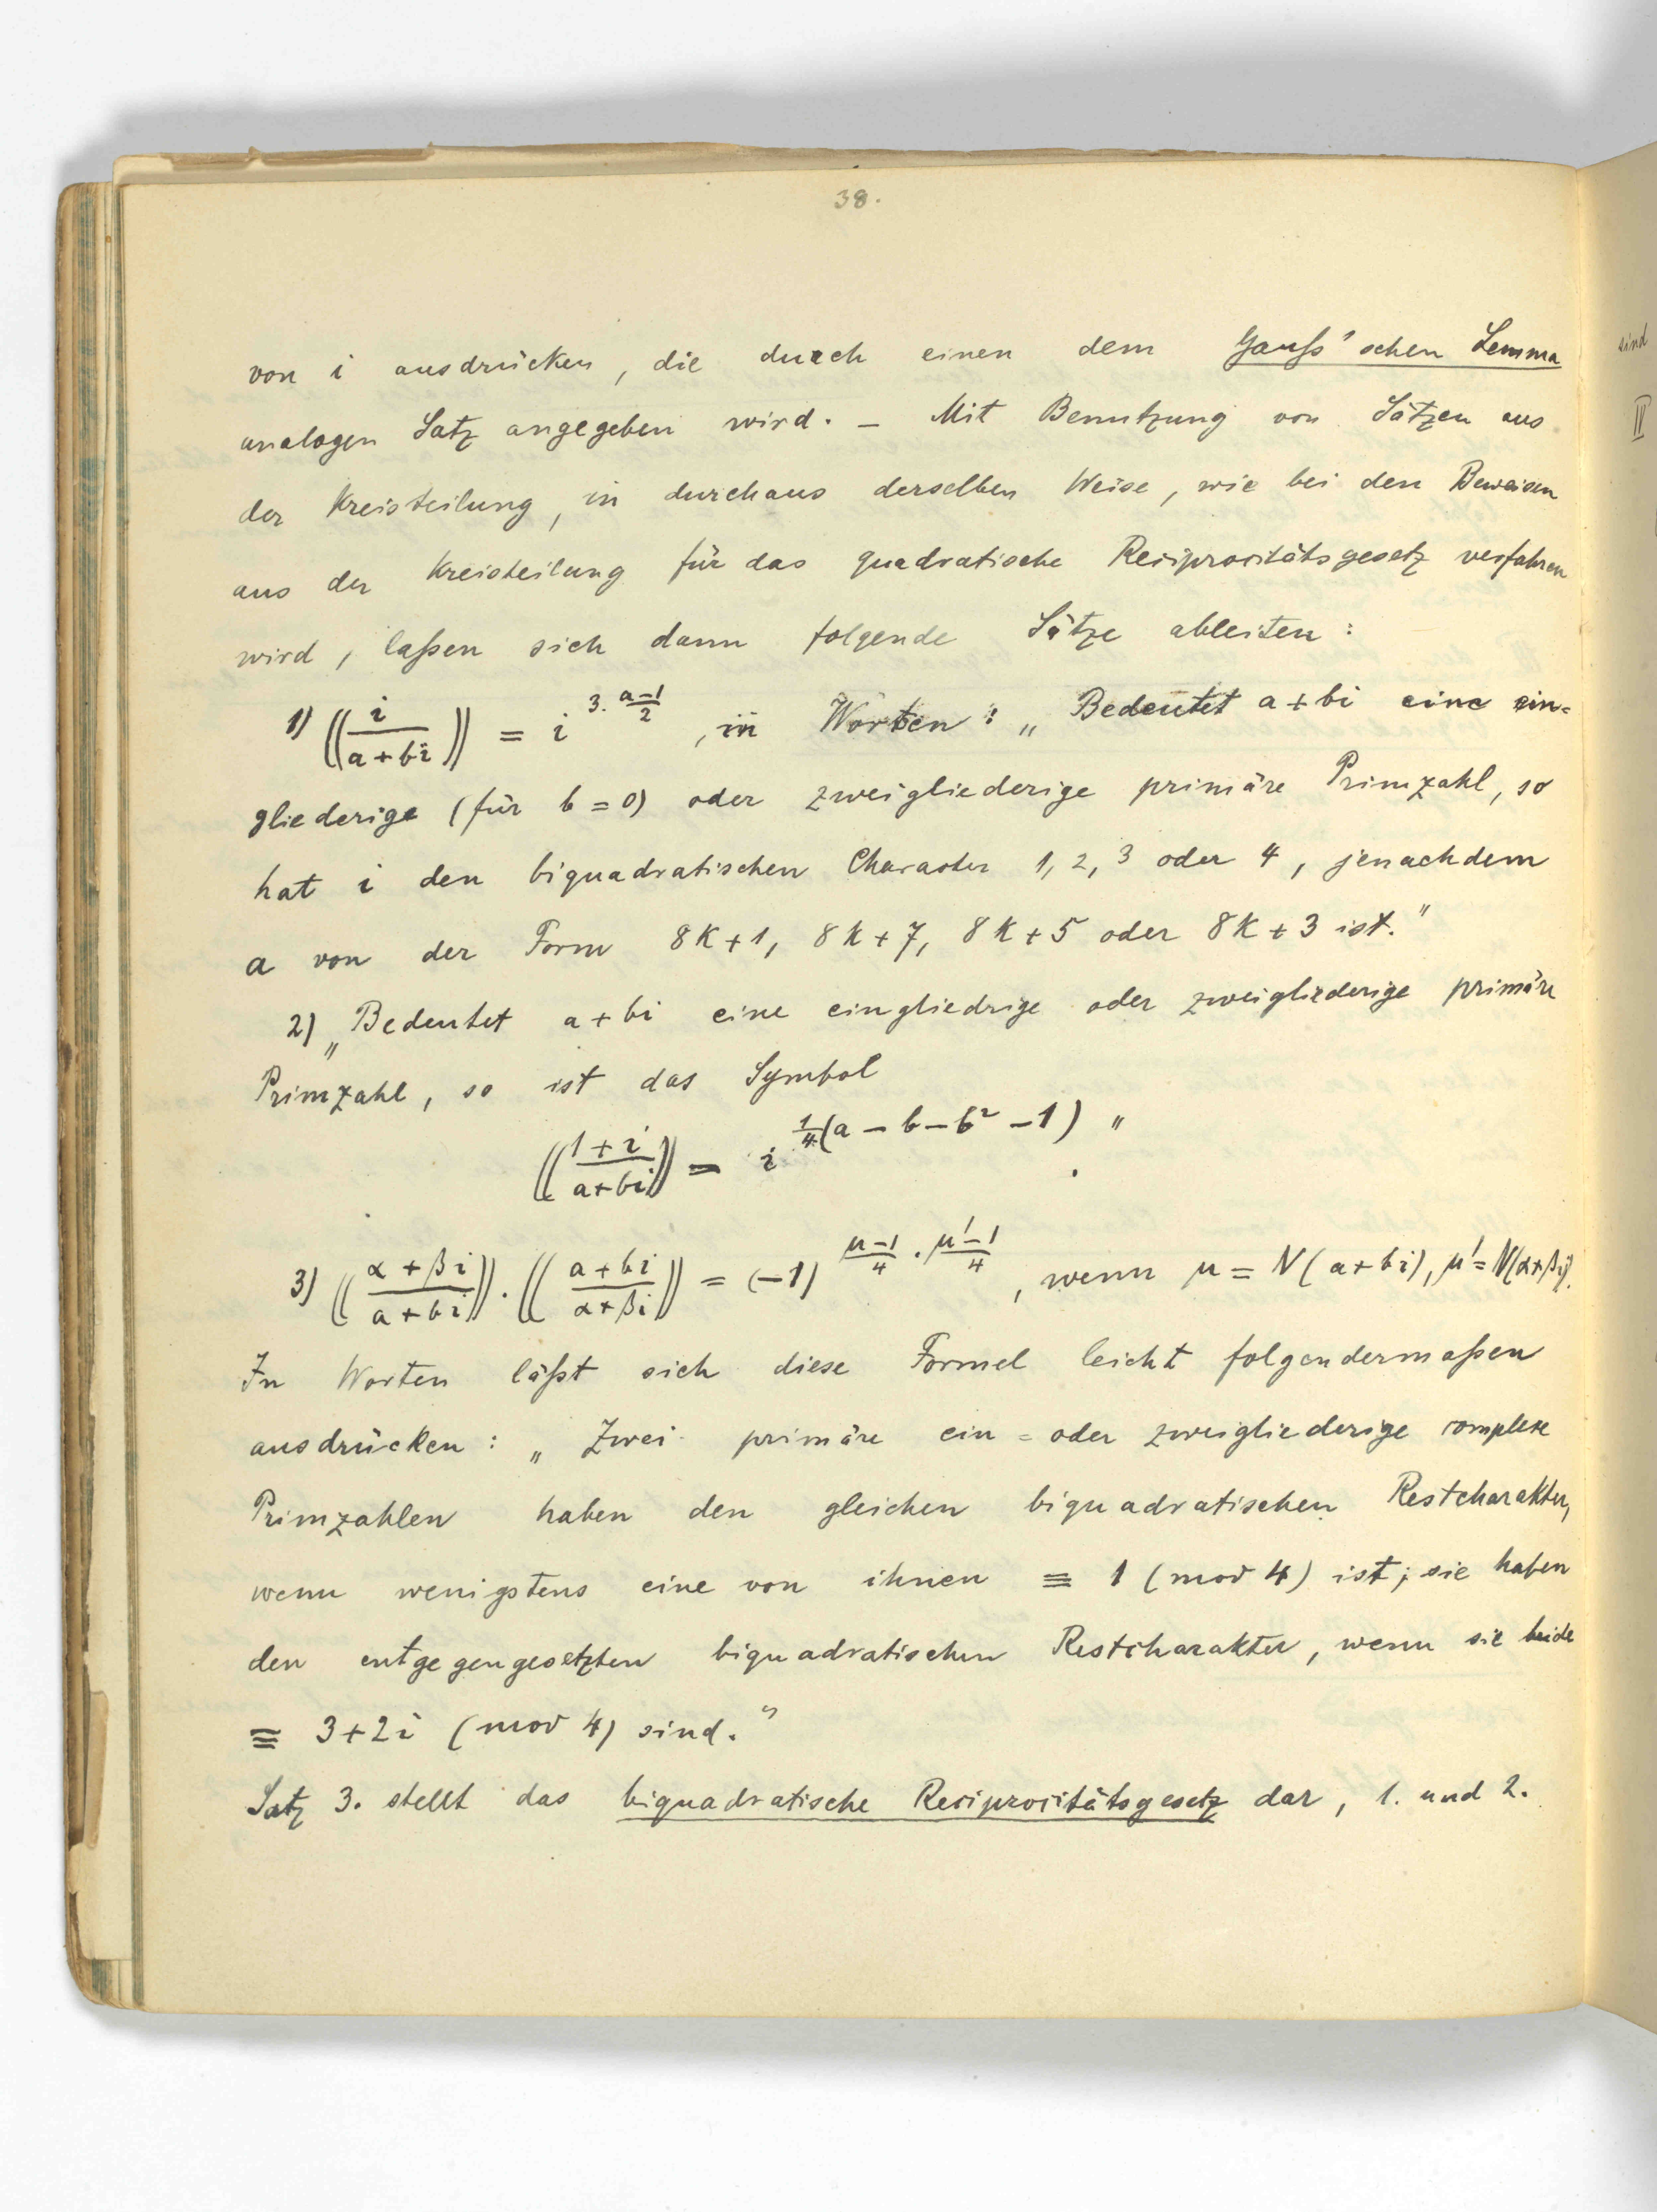 38.
von i ausdrücken, die durch einen dem Gauß'schen Lemma
analogen Satz angegeben wird. – Mit Benutzung von Sätzen aus
der Kreisteilung, in durchaus derselben Weise, wie bei den Beweisen
aus der Kreisteilung für das quadratische Reciprocitätsgesetz verfahren
wird, laßen sich dann folgende Sätze ableiten:
1) ((i/(a+bi))) = i^(3·(a-1)/2), in Worten: „Bedeutet a+bi eine ein=
gliederige (für b=0) oder zweigliederige primäre Primzahl, so
hat i den biquadratischen Character 1, 2, 3 oder 4, jenachdem
a von der Form 8k+1, 8k+7, 8k+5 oder 8k+3 ist."
2) „Bedeutet a+bi eine eingliedrige oder zweigliederige primäre
Primzahl, so ist das Symbol
(((1+i)/(a+bi))) = i^(1/4(a-b-b²-1)) ".
3) (((α+βi)/(a+bi))) · (((a+bi)/(α+βi))) = (-1)^((μ-1)/4 · (μ'-1)/4), wenn μ = N(a+bi), μ' = N(α+βi).
In Worten läßt sich diese Formel leicht folgendermaßen
ausdrücken: „Zwei primäre ein= oder zweigliederige complexe
Primzahlen haben den gleichen biquadratischen Restcharakter,
wenn wenigstens eine von ihnen ≡ 1 (mod 4) ist; sie haben
den entgegengesetzten biquadratischen Restcharakter, wenn sie beide
≡ 3+2i (mod 4) sind."
Satz 3. stellt das biquadratische Reciprocitätsgesetz dar, 1. und 2.
sind
II